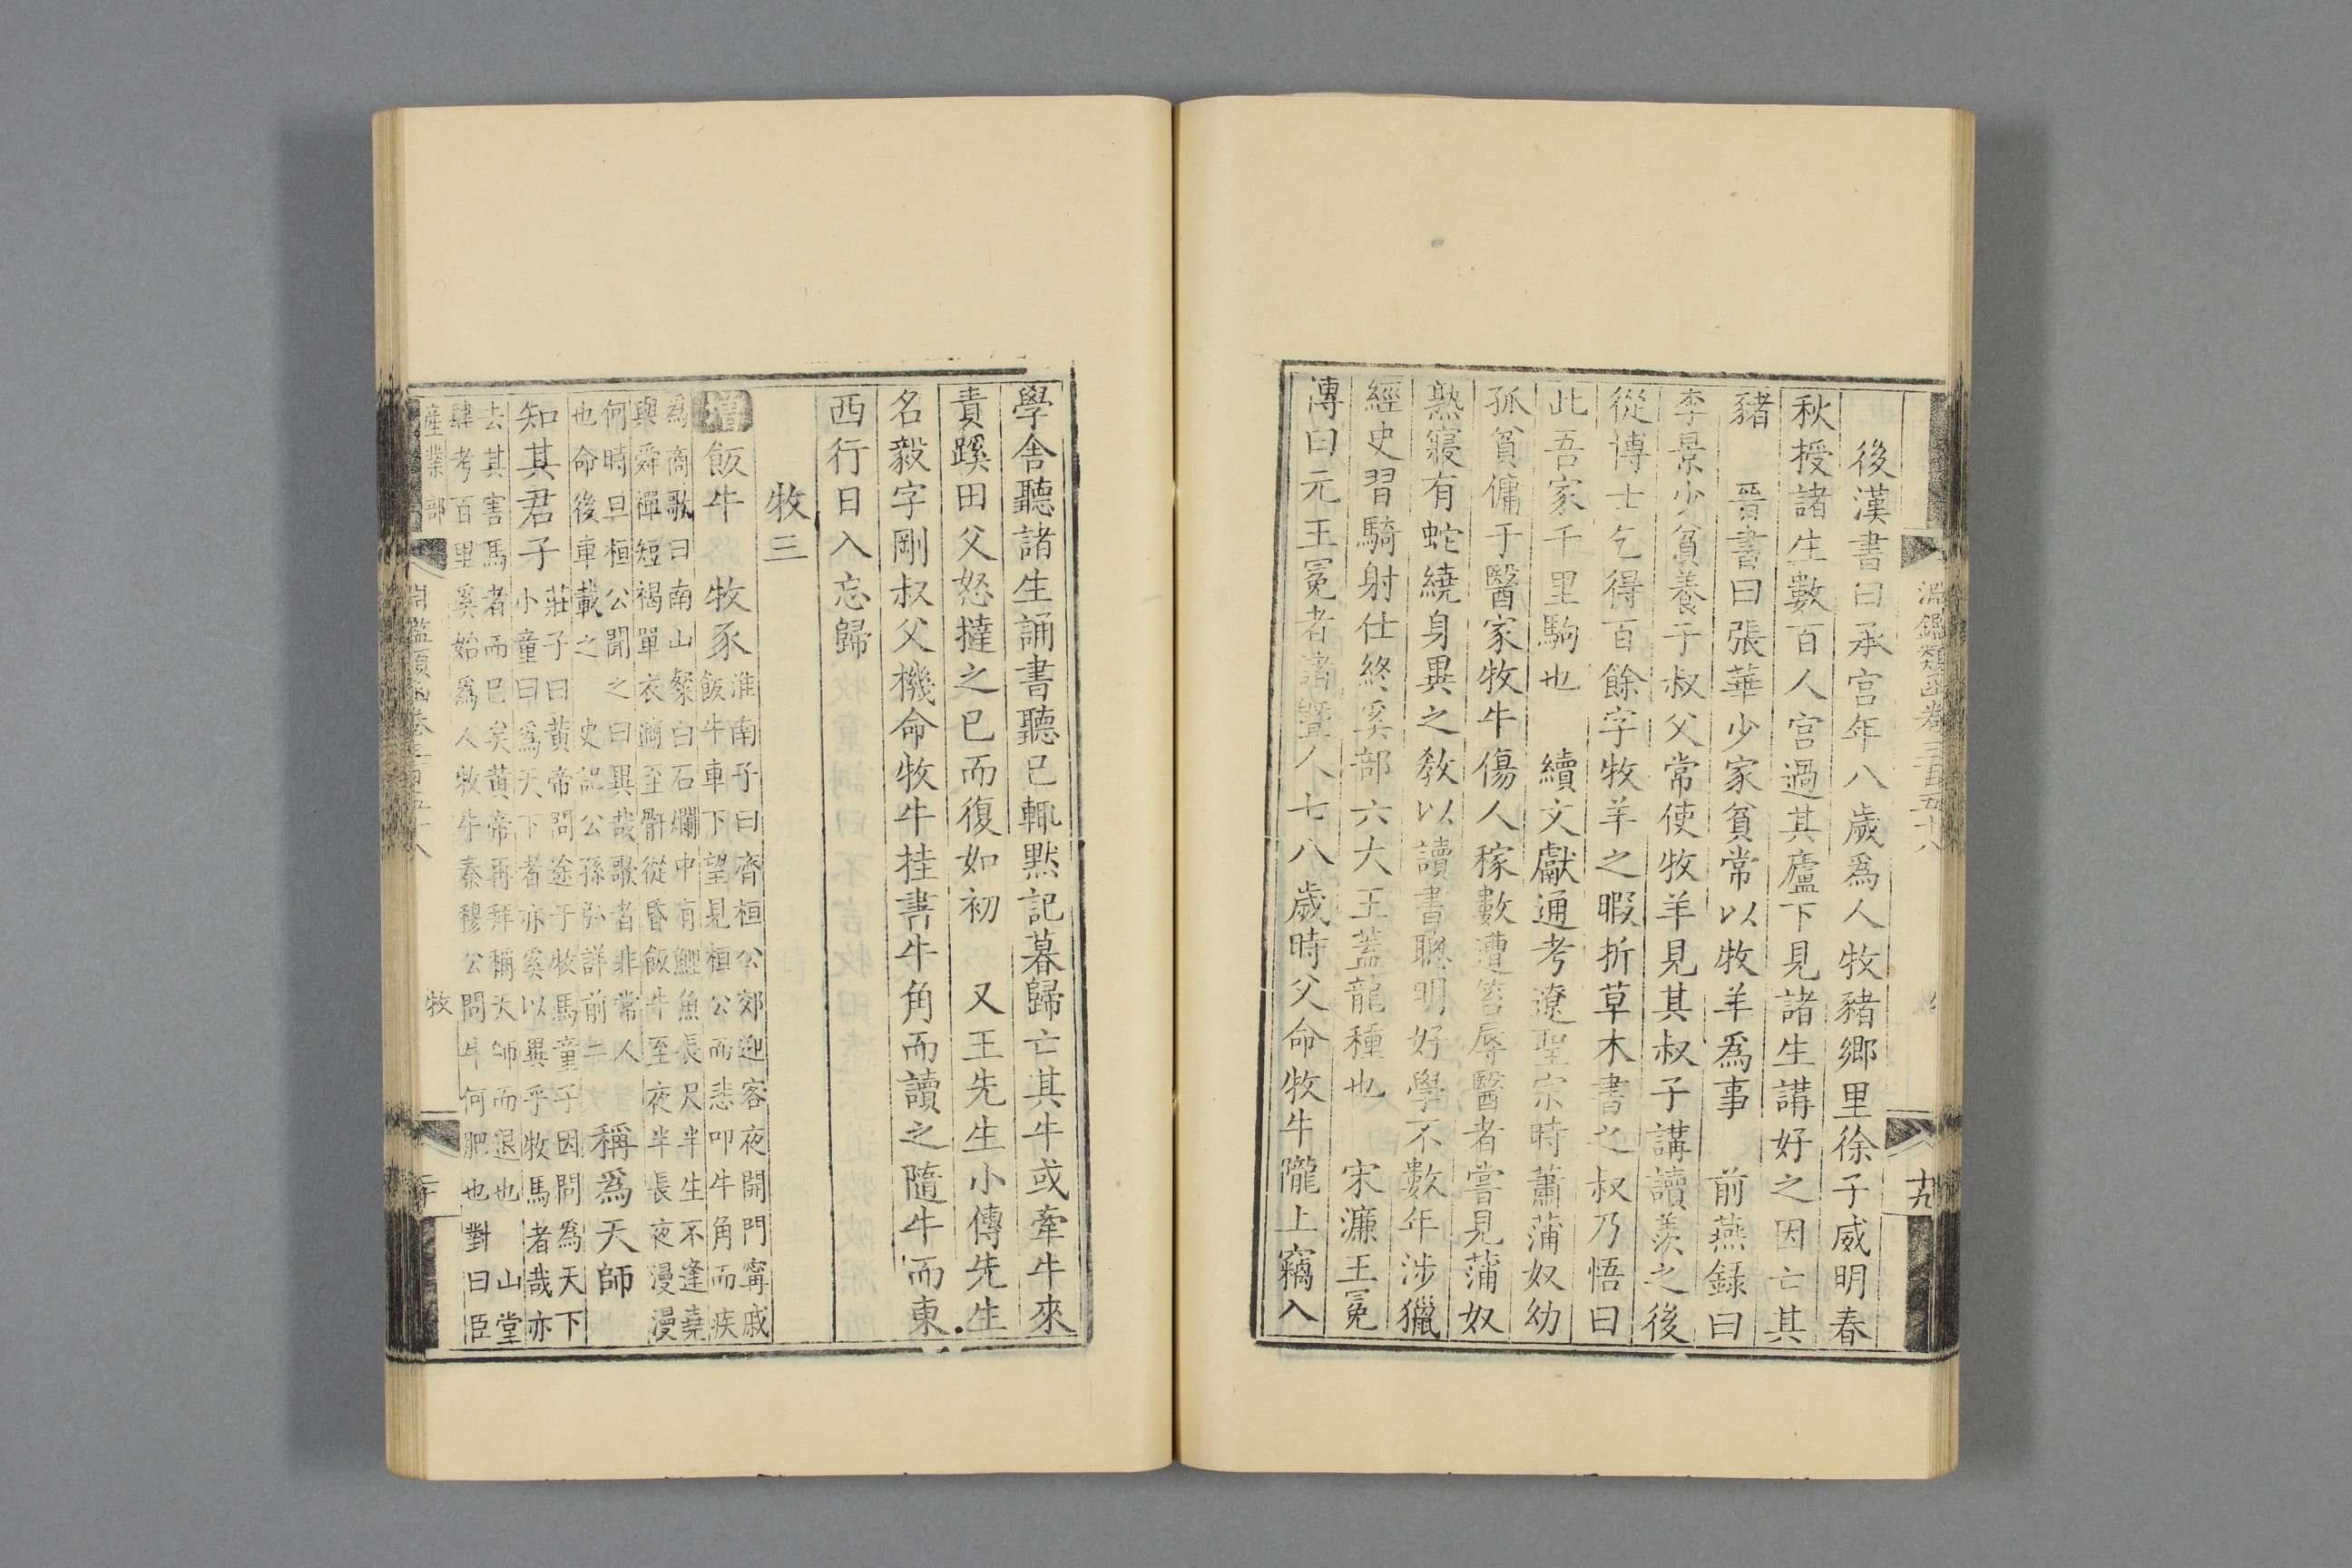 淵鑑類函卷三百五十八
十九
後漢書曰承宮年八歲爲人牧豬鄉里徐子威明春
秋授諸生數百人宮過其廬下見諸生講好之因亡其
豬 晉書曰張華少家貧常以牧羊爲事 前燕録曰
李景少貧養于叔父常使牧羊見其叔子講讀羨之後
從博士乞得百餘字牧羊之暇折草木書之叔乃悟曰
此吾家千里駒也 續文獻通考遼聖宗時蕭蒲奴幼
孤貧傭于醫家牧牛傷人稼數遭笞辱醫者嘗見蒲奴
熟寢有蛇繞身異之教以讀書聰明好學不數年涉獵
經史習騎射仕終奚部六大王蓋龍種也 宋濂王冕
傳曰元王冕者諸曁人七八歲時父命牧牛隴上竊入
學舍聽諸生誦書聽已輒默記暮歸亡其牛或牽牛來
責蹊田父怒撻之已而復如初 又王先生小傳先生
名毅字剛叔父機命牧牛挂書牛角而讀之隨牛而東
西行日入忘歸
牧三
增飯牛 牧豕
淮南子曰齊桓公郊迎客夜開門甯戚
飯牛車下望見桓公而悲叩牛角而疾
爲商歌曰南山粲白石爛中有鯉魚長尺半生不逢堯
與舜禪短褐單衣適至骭從昏飯牛至夜半長夜漫漫
何時旦桓公聞之曰異哉歌者非常人
也命後車載之 史記公孫弘詳前二
稱爲天師
知其君子
莊子曰黄帝問途于牧馬童子因問爲天下
小童曰爲天下者亦奚以異乎牧馬者哉亦
去其害馬者而已矣黄帝再拜稱天師而退也 山堂
肆考百里奚始爲人牧牛秦穆公問牛何肥也對曰臣
産業部
淵鑑類函卷三百五十八
牧
二十